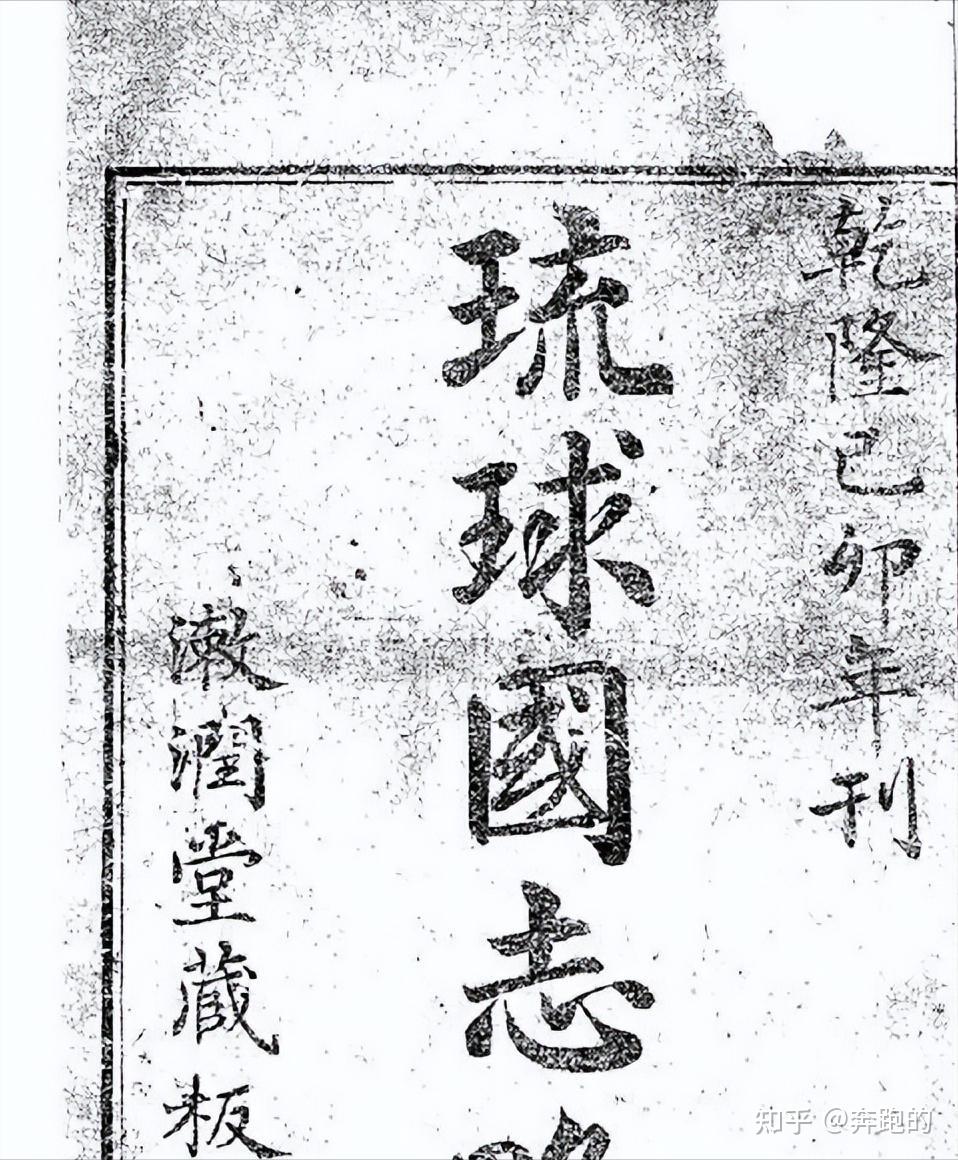 乾隆己卯年刊
琉球國志
漱潤堂藏板
知乎 @奔跑的